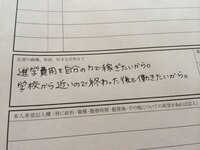 志望の動機、特技、好きな学科など
進学費用を自分の力で稼ぎたいから。
学校から近いので終わった後も働きたいから。
本人希望記入欄(特に給料・職種・勤務時間・勤務地・その他についての希望があれば記入)